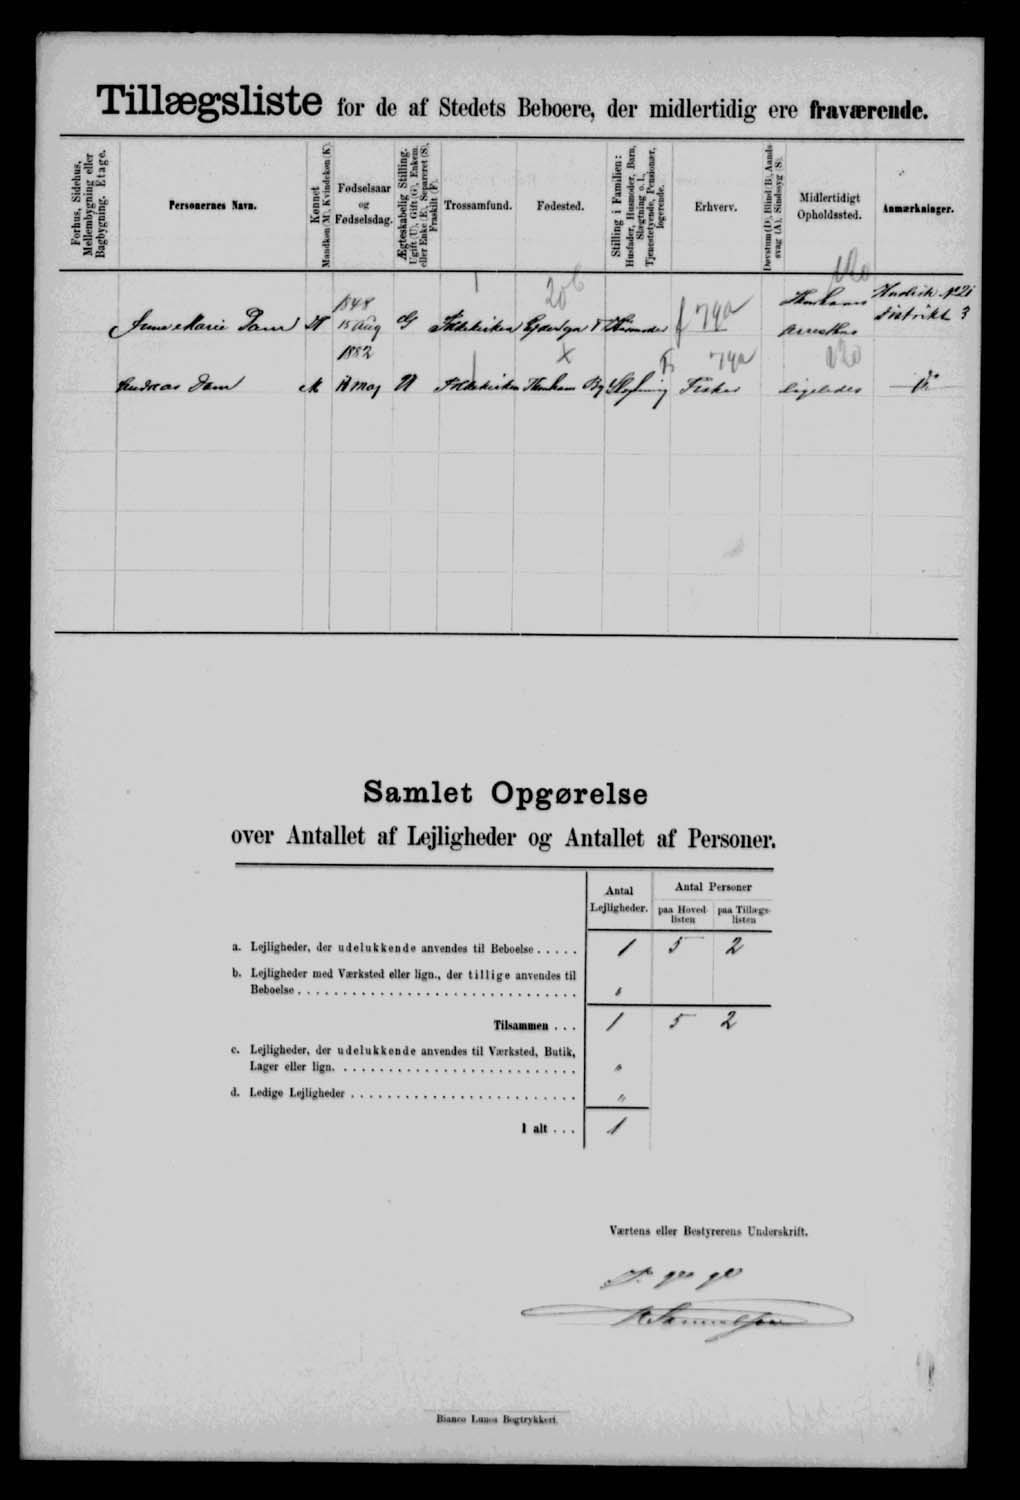 Tillægsliste for de af Stedets Beboere, der midlertidig ere fraværende.
Forhus, Sidehus, Mellembygning eller Bagbygning. Etage.
Personernes Navn.
Kønnet Mandkøn (M), Kvindekøn (K).
Fødselsaar og Fødselsdag.
Ægteskabelig Stilling. Ugift (U), Gift (G), Enkem. eller Enke (E), Separeret (S), Fraskilt (F).
Trossamfund.
Fødested.
Stilling i Familien: Husfader, Husmoder, Barn, Slægtning o. l., Tjenestetyende, Pensionær, logerende.
Erhverv.
Døvstum (D), Blind (B), Aandssvag (A), Sindssyg (S).
Midlertidigt Opholdssted.
Anmærkninger.
Marie Dam 1848 15 Aug G Folkekirken Husmoder 79a Arresthus Distrikt 3
Andreas Dam M 1882 Maj U Folkekirken By Fisker 79a ligeledes
Samlet Opgørelse
over Antallet af Lejligheder og Antallet af Personer.
Antal Lejligheder.
Antal Personer
paa Hovedlisten
paa Tillægslisten
a. Lejligheder, der udelukkende anvendes til Beboelse ..... 1 5 2
b. Lejligheder med Værksted eller lign., der tillige anvendes til
Beboelse ............................... "
Tilsammen ... 1 5 2
c. Lejligheder, der udelukkende anvendes til Værksted, Butik,
Lager eller lign. .......................... "
d. Ledige Lejligheder ......................... "
I alt ... 1
Værtens eller Bestyrerens Underskrift.
Bianco Lunos Bogtrykkeri.